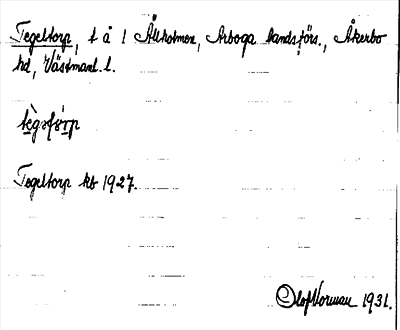 Tegeltorp, t å 1 Ällholmen, Arboga landsförs., Åkerbo
hd, Västmanl. l.
tègəltórp
Tegeltorp kb 1927.
Olof Norman 1931.